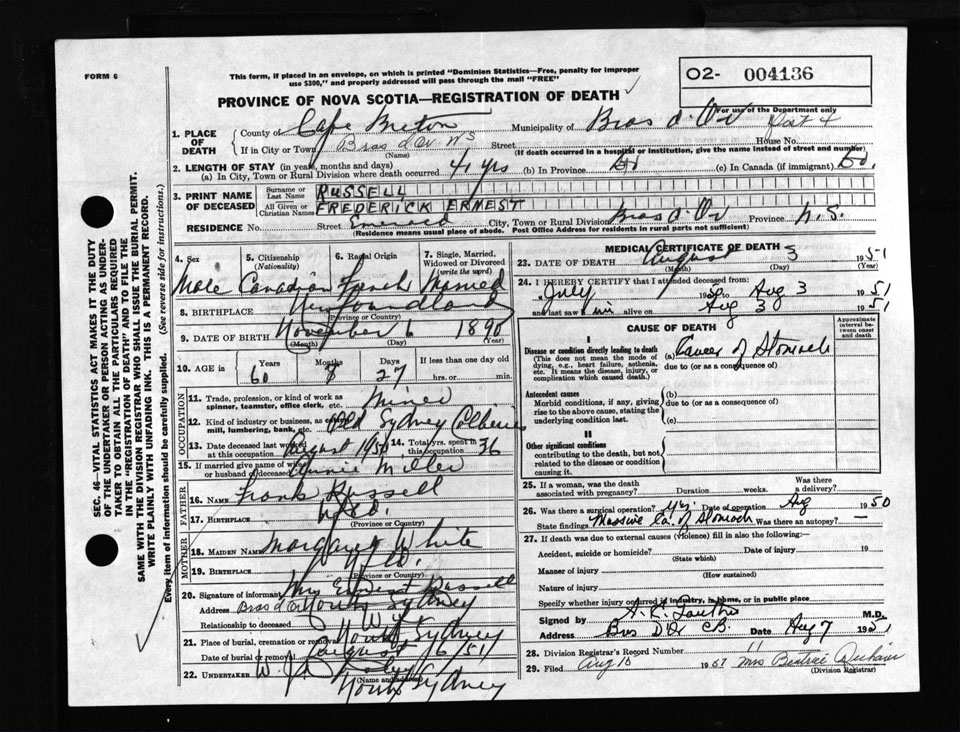 FORM 6
This form, if placed in an envelope, on which is printed "Dominion Statistics—Free, penalty for improper
use $300," and properly addressed will pass through the mail "FREE"
O2- 004136
PROVINCE OF NOVA SCOTIA—REGISTRATION OF DEATH
For use of the Department only
1. PLACE OF DEATH County of Cape Breton Municipality of Bras d'Or
If in City or Town Bras d'Or (Name) Street House No.
(If death occurred in a hospital or institution, give the name instead of street and number)
2. LENGTH OF STAY (in years, months and days)
(a) In City, Town or Rural Division where death occurred 41 yrs (b) In Province (c) In Canada (if immigrant)
3. PRINT NAME OF DECEASED Surname or Last Name RUSSELL
All Given or Christian Names FREDERICK ERNEST
RESIDENCE No. Street City, Town or Rural Division Bras d'Or Province N.S.
(Residence means usual place of abode. Post Office Address for residents in rural parts not sufficient)
SEC. 46—VITAL STATISTICS ACT MAKES IT THE DUTY
OF THE UNDERTAKER OR PERSON ACTING AS UNDER-
TAKER TO OBTAIN ALL THE PARTICULARS REQUIRED
IN THE "REGISTRATION OF DEATH" AND TO FILE THE
SAME WITH THE DIVISION REGISTRAR WHO SHALL ISSUE THE BURIAL PERMIT.
WRITE PLAINLY WITH UNFADING INK. THIS IS A PERMANENT RECORD.
Every item of information should be carefully supplied. (See reverse side for instructions.)
4. Sex 5. Citizenship (Nationality) 6. Racial Origin 7. Single, Married, Widowed or Divorced (write the word)
Male Canadian French Married
8. BIRTHPLACE Newfoundland
(Province or Country)
9. DATE OF BIRTH November 6 1890
(Month) (Day) (Year)
10. AGE in Years Months Days If less than one day
60 8 27 hrs. or min.
OCCUPATION
11. Trade, profession or kind of work as spinner, teamster, office clerk, etc. Miner
12. Kind of industry or business, as cotton mill, lumbering, bank, etc. Old Sydney Collieries
13. Date deceased last worked at this occupation August 1950 14. Total yrs. spent in this occupation 36
15. If married give name of wife or husband of deceased Annie Miller
FATHER
16. NAME Frank Russell
17. BIRTHPLACE Nfld.
(Province or Country)
MOTHER
18. MAIDEN NAME Margaret White
19. BIRTHPLACE Nfld.
(Province or Country)
20. Signature of informant Mrs Ernest Russell
Address Bras d'Or North Sydney
Relationship to deceased Wife
21. Place of burial, cremation or removal North Sydney
Date of burial or removal August 6/51
22. UNDERTAKER
(Name and address)
North Sydney
MEDICAL CERTIFICATE OF DEATH
23. DATE OF DEATH August 3 1951
(Month) (Day) (Year)
24. I HEREBY CERTIFY that I attended deceased from:
July 19 to Aug 3 1951
and last saw him alive on Aug 3 1951
CAUSE OF DEATH
Approximate interval between onset and death
I
Disease or condition directly leading to death (a) Cancer of Stomach
(This does not mean the mode of dying, e.g., heart failure, asthenia, etc. It means the disease, injury, or complication which caused death.)
due to (or as a consequence of)
Antecedent causes (b)
Morbid conditions, if any, giving rise to the above cause, stating the underlying condition last.
due to (or as a consequence of)
(c)
II
Other significant conditions
contributing to the death, but not
related to the disease or condition
causing it.
25. If a woman, was the death associated with pregnancy? Duration weeks. Was there a delivery?
26. Was there a surgical operation? Yes Date of operation Aug 1950
State findings Massive Ca. of Stomach Was there an autopsy? —
27. If death was due to external causes (violence) fill in also the following:—
Accident, suicide or homicide? Date of injury 19
(State which)
Manner of injury
(How sustained)
Nature of injury
Specify whether injury occurred in industry, in home, or in public place
Signed by M.D.
Address Bras D'Or C.B. Date Aug 7 1951
28. Division Registrar's Record Number 11
29. Filed Aug 10 1951 Mrs Beatrice
(Division Registrar)